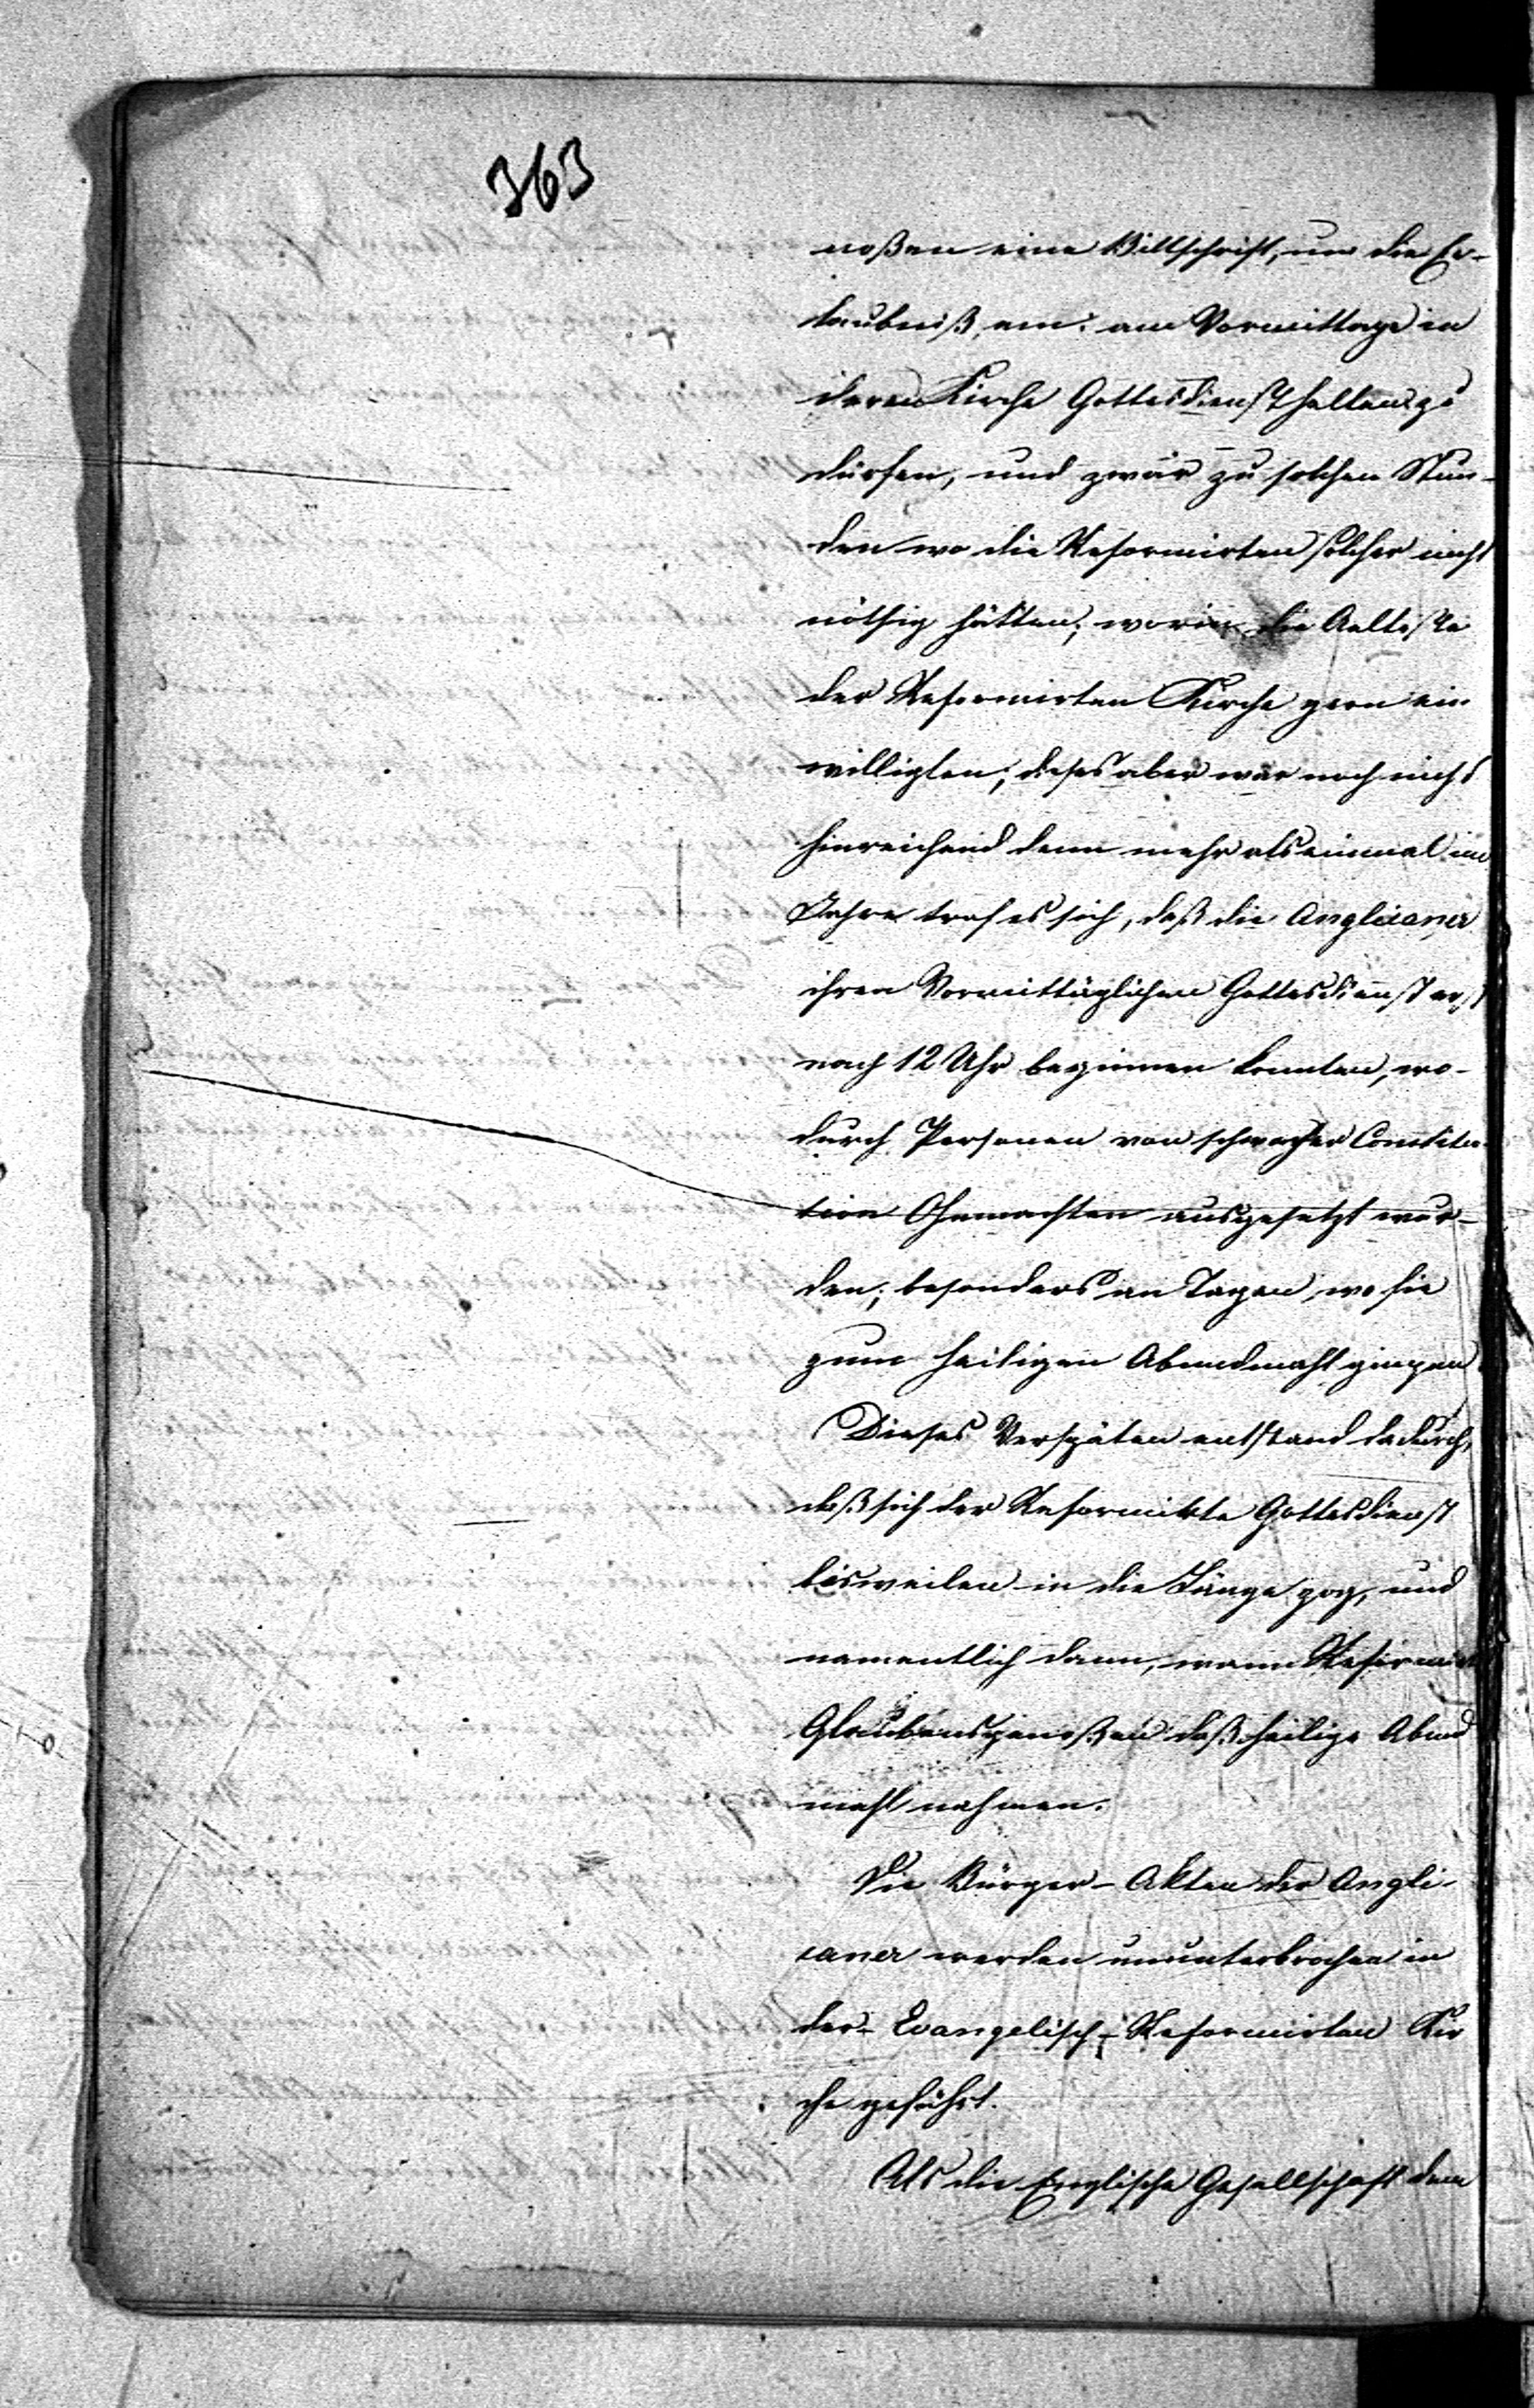 363
noßen eine Bittschrift, um die Er-
laubniß, ein: am Vormittage in
deren Kirche Gottesdienst halten zu
dürfen, und zwar zu solchen Stun-
den wo die Reformirten solcher nicht
nöthig hätten; worin die Aelteste
der Reformirten Kirche gern ein
willigten; dieses aber war noch nicht
hinreichend denn mehr als einmal im
Jahre traf es sich, daß die Anglicaner
ihren Vormittäglichen Gottesdienst erst
nach 12 Uhr beginnen konnten, wo-
durch Personen von schwacher Constitu-
tion Ohnmachten ausgesetzt wur-
den; besonders an Tagen, wo sie
zum heiligen Abendmahl gingen
Dieses Verspäten entstand dadurch,
daß sich der Reformirte Gottesdienst
bisweilen in die Länge zog, und
namentlich dann, wann Reformirte
Glaubensgenoßen daß heilige Abend
mahl nahmen.
Die Bürger-Akten der Angli-
caner werden ununterbrochen in
der Evangelisch-Reformirten Kir
che geführt.
Als die Englische Gesellschaft dem